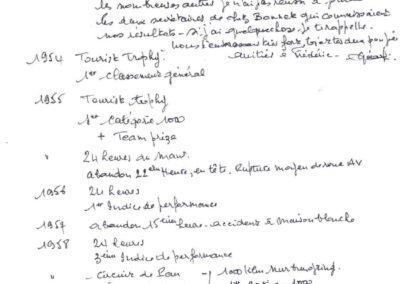 les nombreuses autres je n'ai pas réussi à
les deux secrétaires de chez Bonnet qui connaissaient
nos résultats - si j'ai quelque chose je t'appelle.
nous t'embrassons très fort,
1954 Tourist Trophy. amitiés à Frédéric - Gérard
1er classement général
1955 Tourist trophy
1er Catégorie 1000
+ Team prize
" 24 heures du Mans.
abandon 22ème Heure, en tête. Rupture moyeu de roue AV
1956 24 heures
1er Indice de performance
1957 abandon 15ième heure - accident à Maison blanche
1958 24 heures
3ième Indice de performance
" - Circuit de - 1000 Klm Nurburgring.